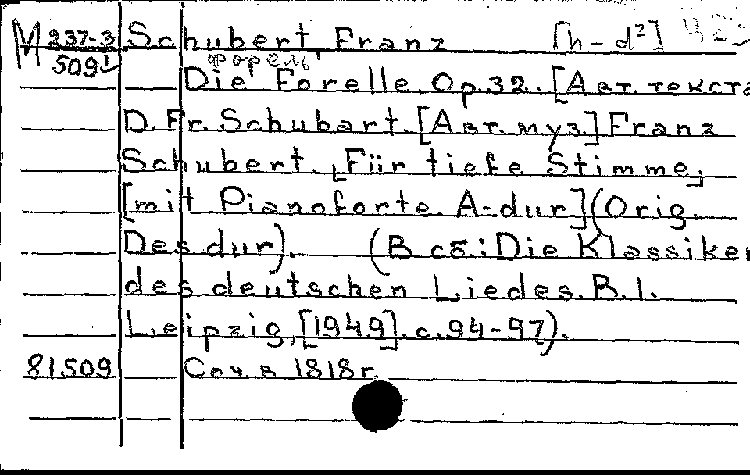 М 237-3 Schubert Franz [h-d²]
509
"Форель"
Die Forelle. Op. 32. [Авт. текста
D. Fr. Schubart. [Авт. муз.] Franz
Schubert. [Für tiefe Stimme]
[mit Pianoforte. A-dur] (Orig.
Des dur). (В сб.: Die Klassiker
des deutschen Liedes. B. 1.
Leipzig, [1949]. с. 94-97).
81509 Соч. в 1818 г.